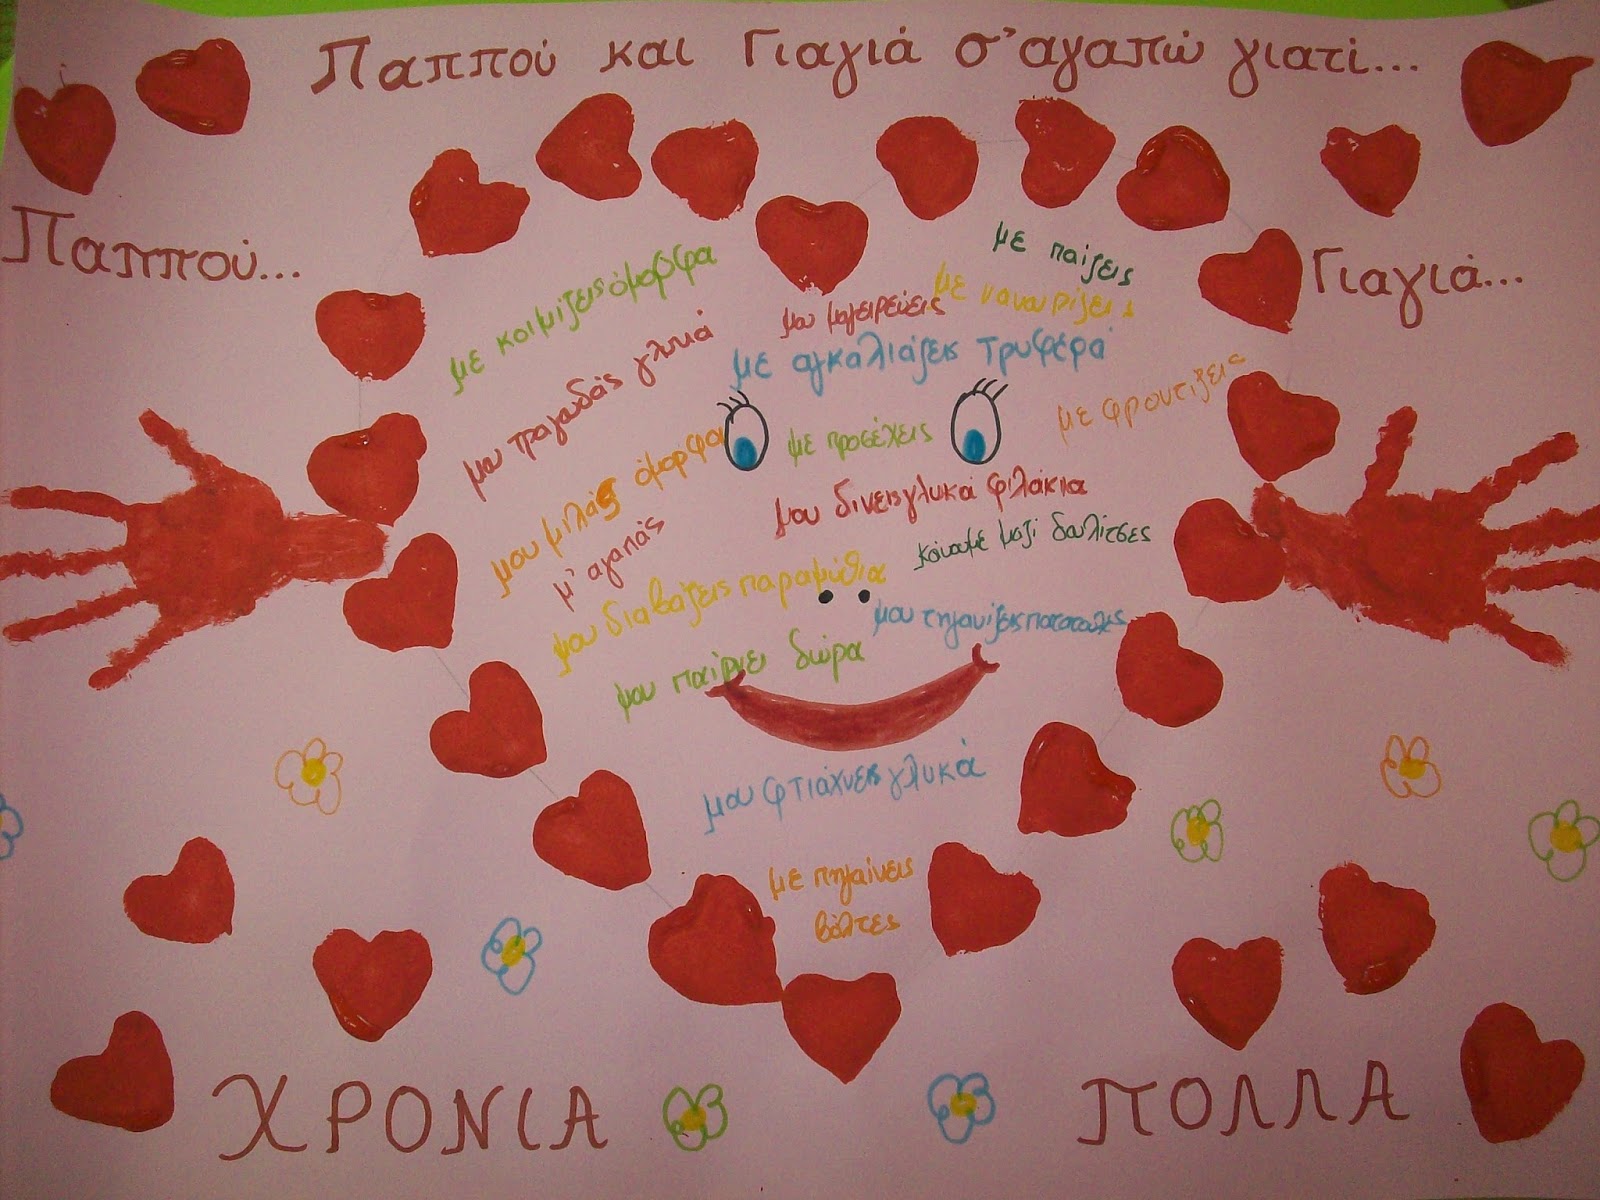 Παππού και Γιαγιά σ'αγαπώ γιατί...
Παππού...
Γιαγιά...
με κοιμίζεις όμορφα
μου τραγουδάς γλυκά
μου μιλάς όμορφα
μ' αγαπάς
μου διαβάζεις παραμύθια
μου παίρνει δώρα
με παίζεις
με νανουρίζεις
μου μαγειρεύεις
με αγκαλιάζεις τρυφερά
με φροντίζεις
με προσέχεις
μου δίνεις γλυκά φιλάκια
κάνουμε μαζί δουλίτσες
μου τηγανίζεις πατατούλες
μου φτιάχνεις γλυκά
με πηγαίνεις
βόλτες
ΧΡΟΝΙΑ
ΠΟΛΛΑ